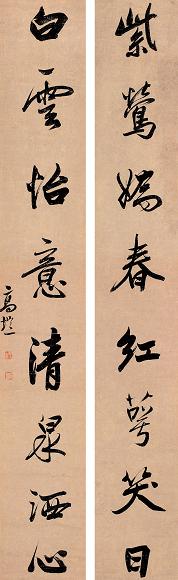 紫鶯嬌春紅萼笑日
白雲怡意清泉洒心
高塏